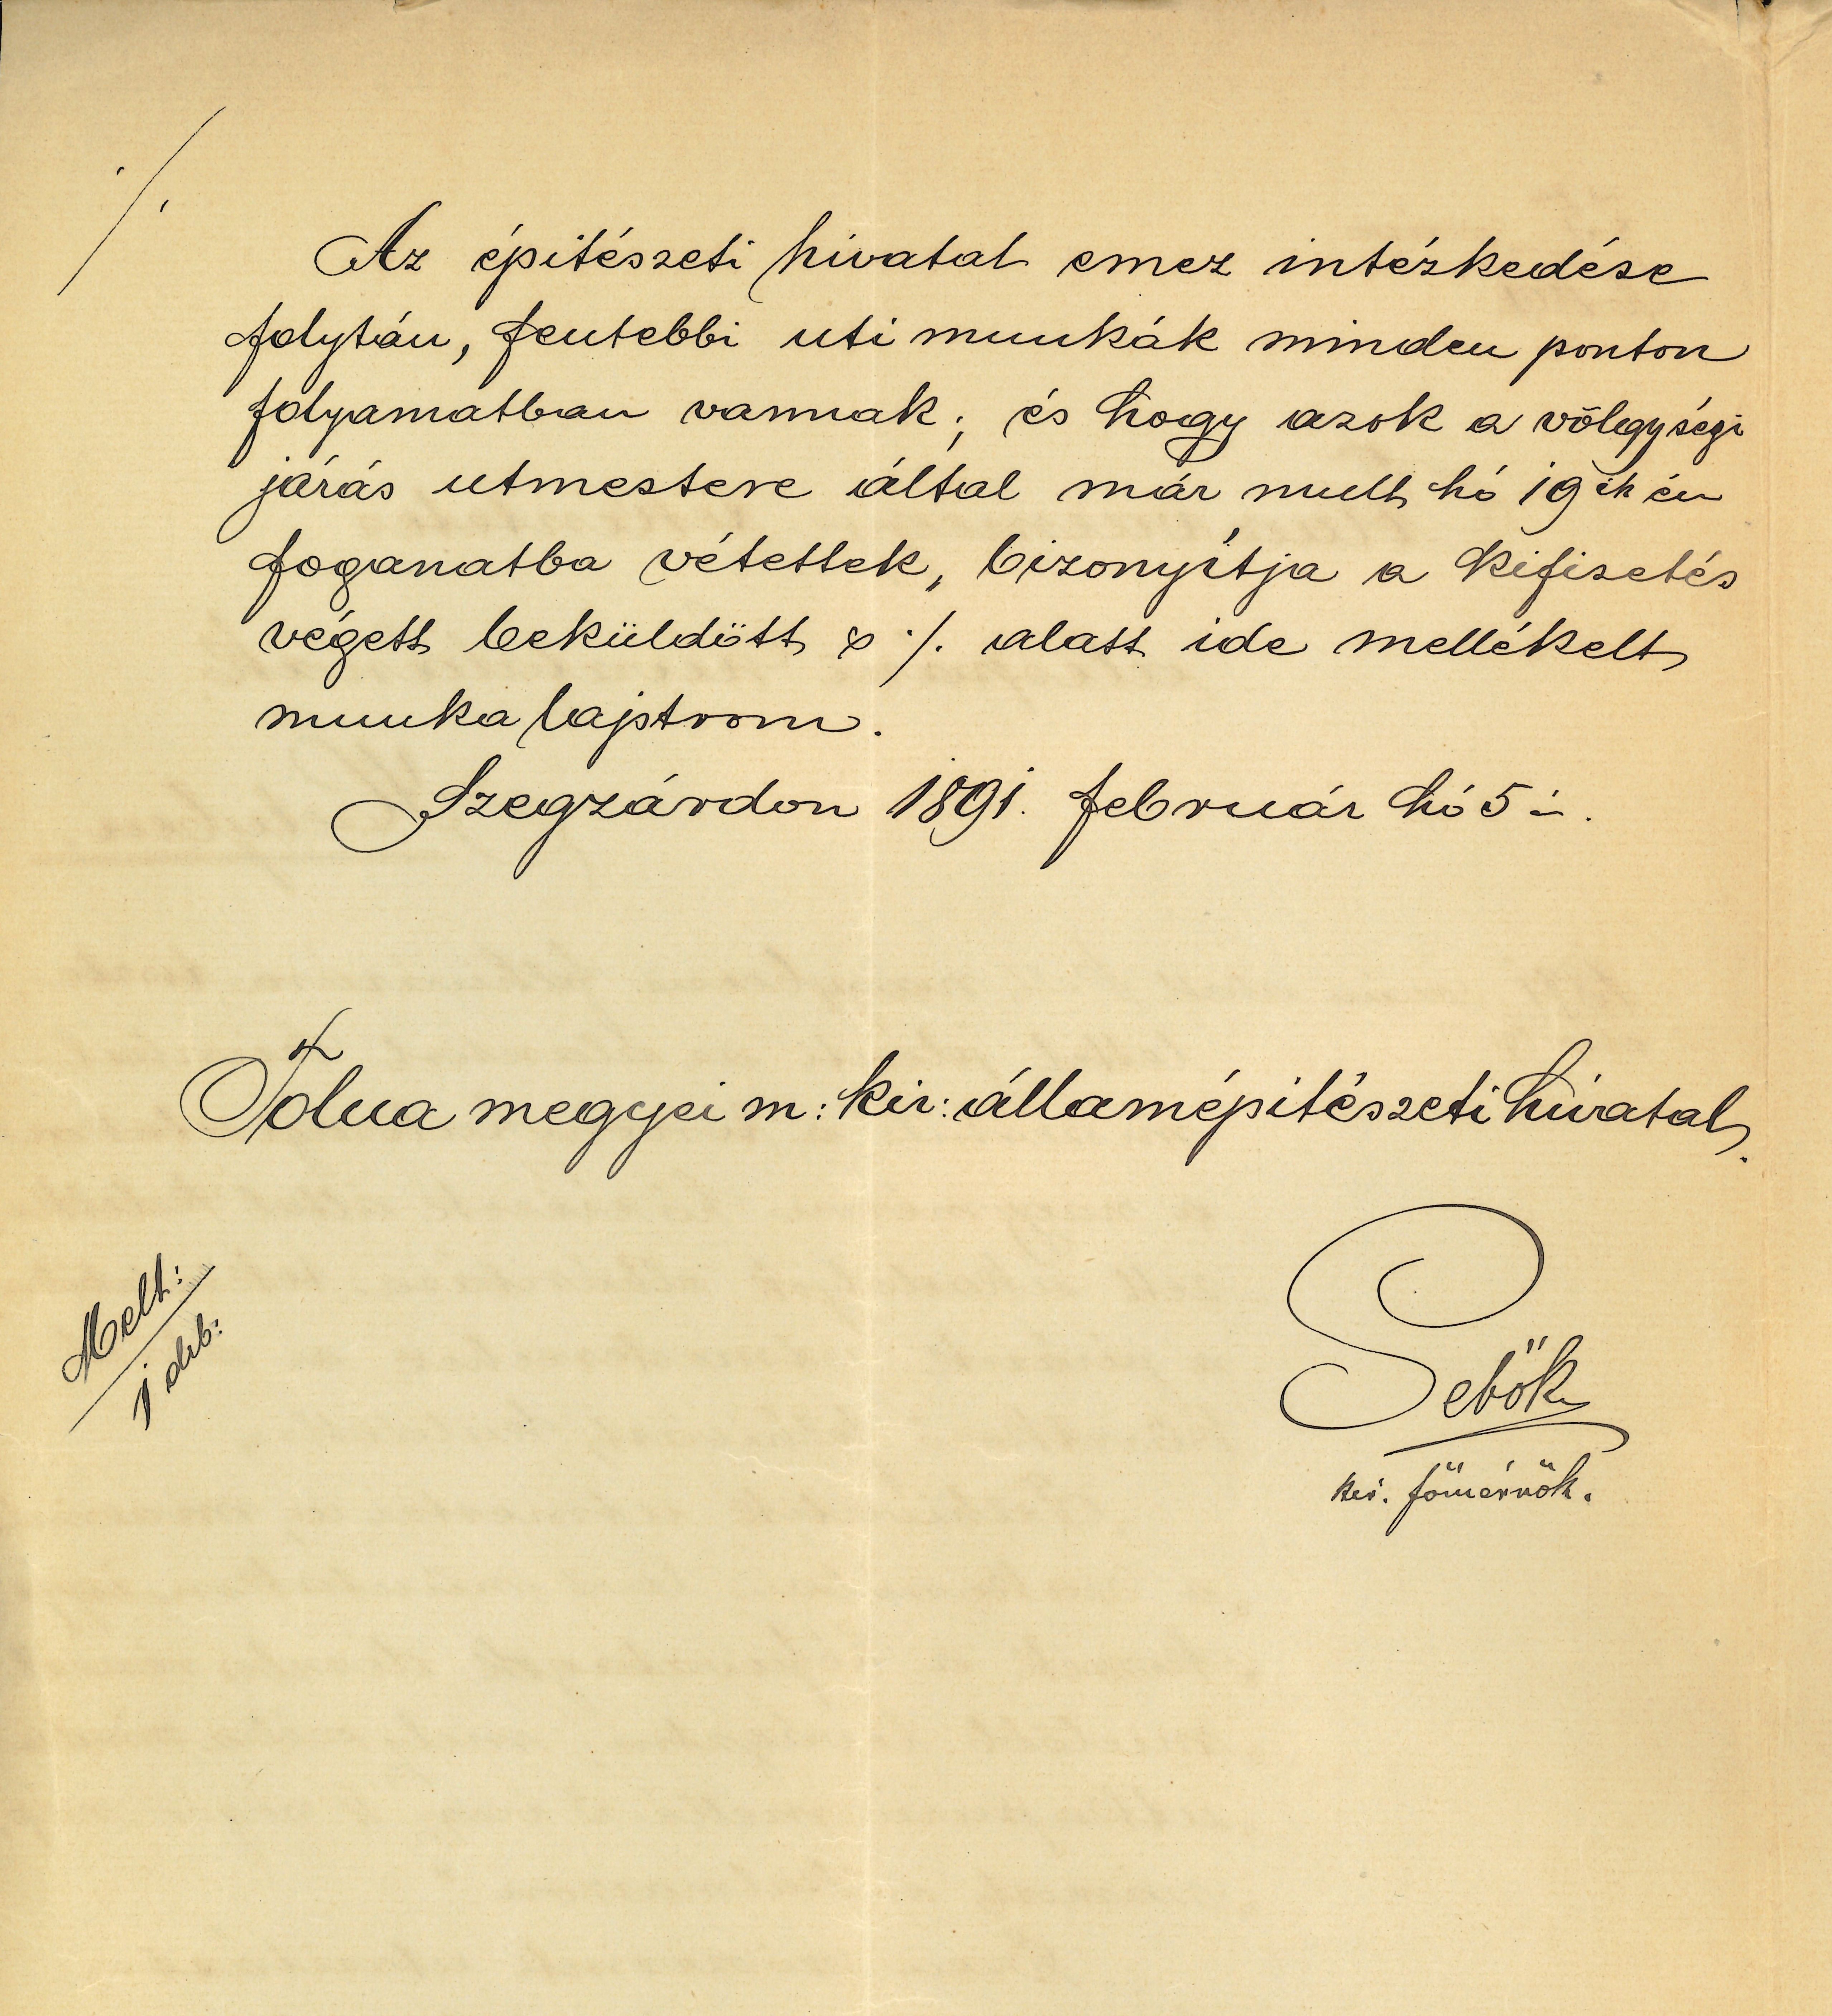 ·/.
Az épitészeti hivatal emez intézkedése
folytán, fentebbi uti munkák minden ponton
folyamatban vannak; és hogy azok a völgységi
járás utmestere által már mult hó 19 ik én
foganatba vétettek, bizonyítja a kifizetés
végett beküldött s ·/. alatt ide mellékelt
munka lajstrom.
Szegzárdon 1891. február hó 5 én.
Tolna megyei m: kir: államépitészeti hivatal.
Mell:
1 drb:
Sebők
kir. főmérnök.